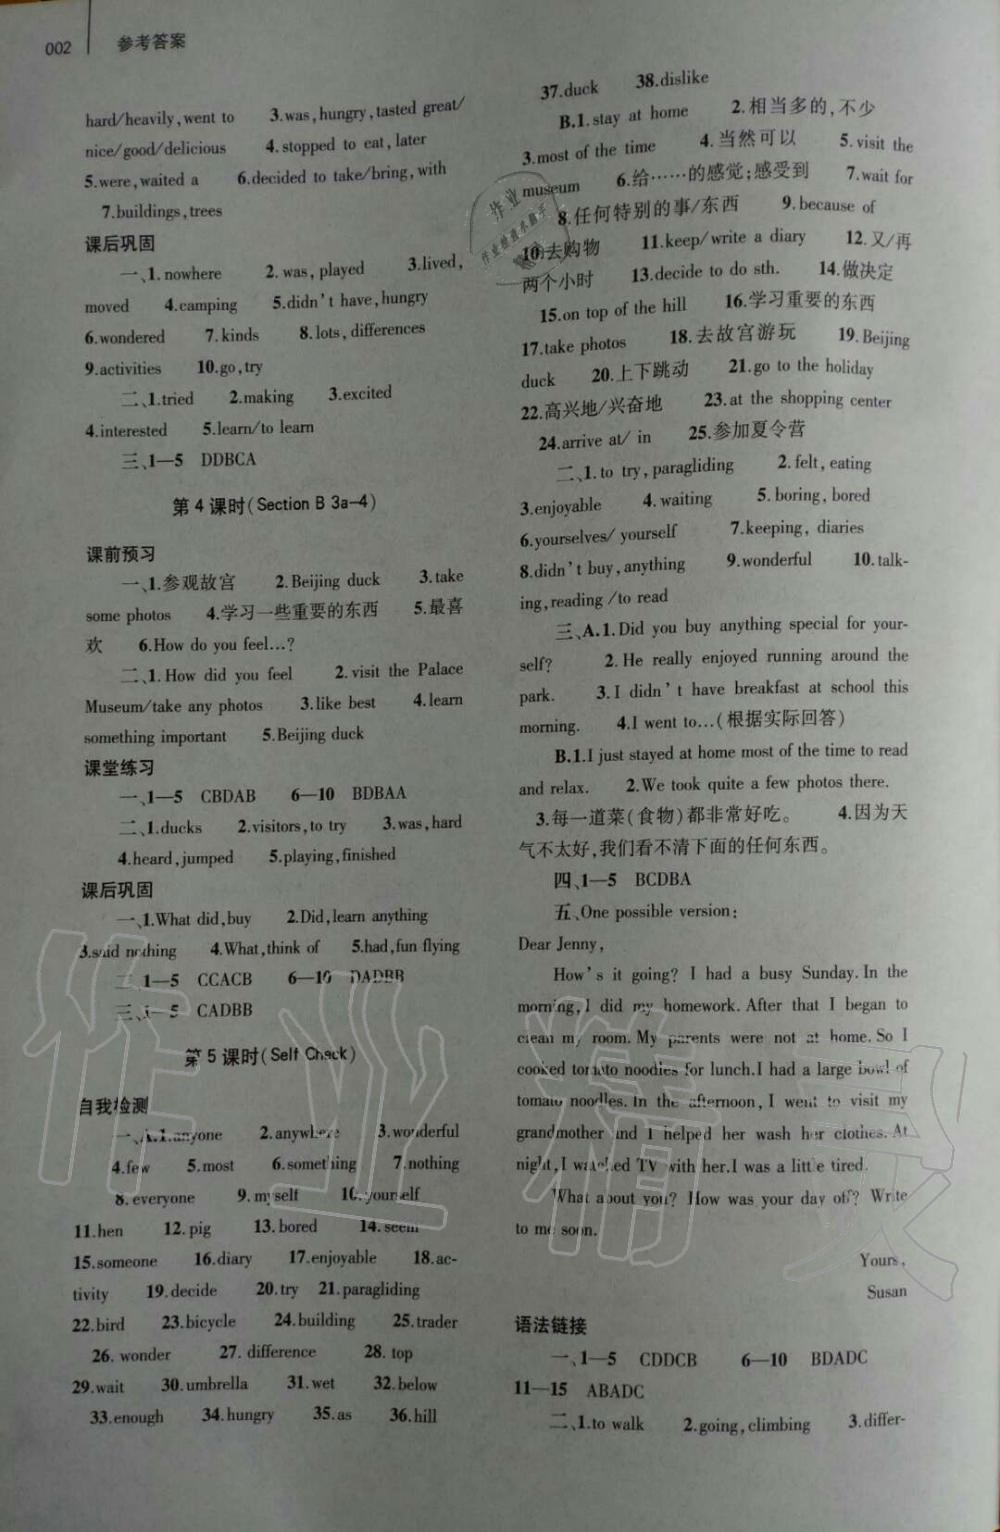 002 参考答案
hard/heavily,went to 3.was,hungry,tasted great/
nice/good/delicious 4.stopped to eat,later
5.were,waited a 6.decided to take/bring,with
7.buildings,trees
课后巩固
一、1.nowhere 2.was,played 3.lived,
moved 4.camping 5.didn't have,hungry
6.wondered 7.kinds 8.lots,differences
9.activities 10.go,try
二、1.tried 2.making 3.excited
4.interested 5.learn/to learn
三、1—5 DDBCA
第4课时(Section B 3a-4)
课前预习
一、1.参观故宫 2.Beijing duck 3.take
some photos 4.学习一些重要的东西 5.最喜
欢 6.How do you feel...?
二、1.How did you feel 2.visit the Palace
Museum/take any photos 3.like best 4.learn
something important 5.Beijing duck
课堂练习
一、1—5 CBDAB 6—10 BDBAA
二、1.ducks 2.visitors,to try 3.was,hard
4.heard,jumped 5.playing,finished
课后巩固
一、1.What did,buy 2.Did,learn anything
3.said nothing 4.What,think of 5.had,fun flying
二、1—5 CCACB 6—10 DADBB
三、1—5 CADBB
第5课时(Self Check)
自我检测
一、A.1.anyone 2.anywhere 3.wonderful
4.few 5.most 6.something 7.nothing
8.everyone 9.myself 10.yourself
11.hen 12.pig 13.bored 14.seem
15.someone 16.diary 17.enjoyable 18.ac-
tivity 19.decide 20.try 21.paragliding
22.bird 23.bicycle 24.building 25.trader
26.wonder 27.difference 28.top
29.wait 30.umbrella 31.wet 32.below
33.enough 34.hungry 35.as 36.hill
37.duck 38.dislike
B.1.stay at home 2.相当多的,不少
3.most of the time 4.当然可以 5.visit the
museum 6.给……的感觉;感受到 7.wait for
8.任何特别的事/东西 9.because of
10.去购物 11.keep/write a diary 12.又/再
两个小时 13.decide to do sth. 14.做决定
15.on top of the hill 16.学习重要的东西
17.take photos 18.去故宫游玩 19.Beijing
duck 20.上下跳动 21.go to the holiday
22.高兴地/兴奋地 23.at the shopping center
24.arrive at/ in 25.参加夏令营
二、1.to try,paragliding 2.felt,eating
3.enjoyable 4.waiting 5.boring,bored
6.yourselves/ yourself 7.keeping, diaries
8.didn't buy,anything 9.wonderful 10.talk-
ing,reading /to read
三、A.1.Did you buy anything special for your-
self? 2.He really enjoyed running around the
park. 3.I didn't have breakfast at school this
morning. 4.I went to...(根据实际回答)
B.1.I just stayed at home most of the time to read
and relax. 2.We took quite a few photos there.
3.每一道菜(食物)都非常好吃。 4.因为天
气不太好,我们看不清下面的任何东西。
四、1—5 BCDBA
五、One possible version:
Dear Jenny,
How's it going? I had a busy Sunday. In the
morning,I did my homework. After that I began to
clean my room. My parents were not at home. So I
cooked tomato noodles for lunch.I had a large bowl of
tomato noodles. In the afternoon, I went to visit my
grandmother and I helped her wash her clothes. At
night,I watched TV with her.I was a little tired.
What about you? How was your day off? Write
to me soon.
Yours,
Susan
语法链接
一、1—5 CDDCB 6—10 BDADC
11—15 ABADC
二、1.to walk 2.going,climbing 3.differ-
作业精灵